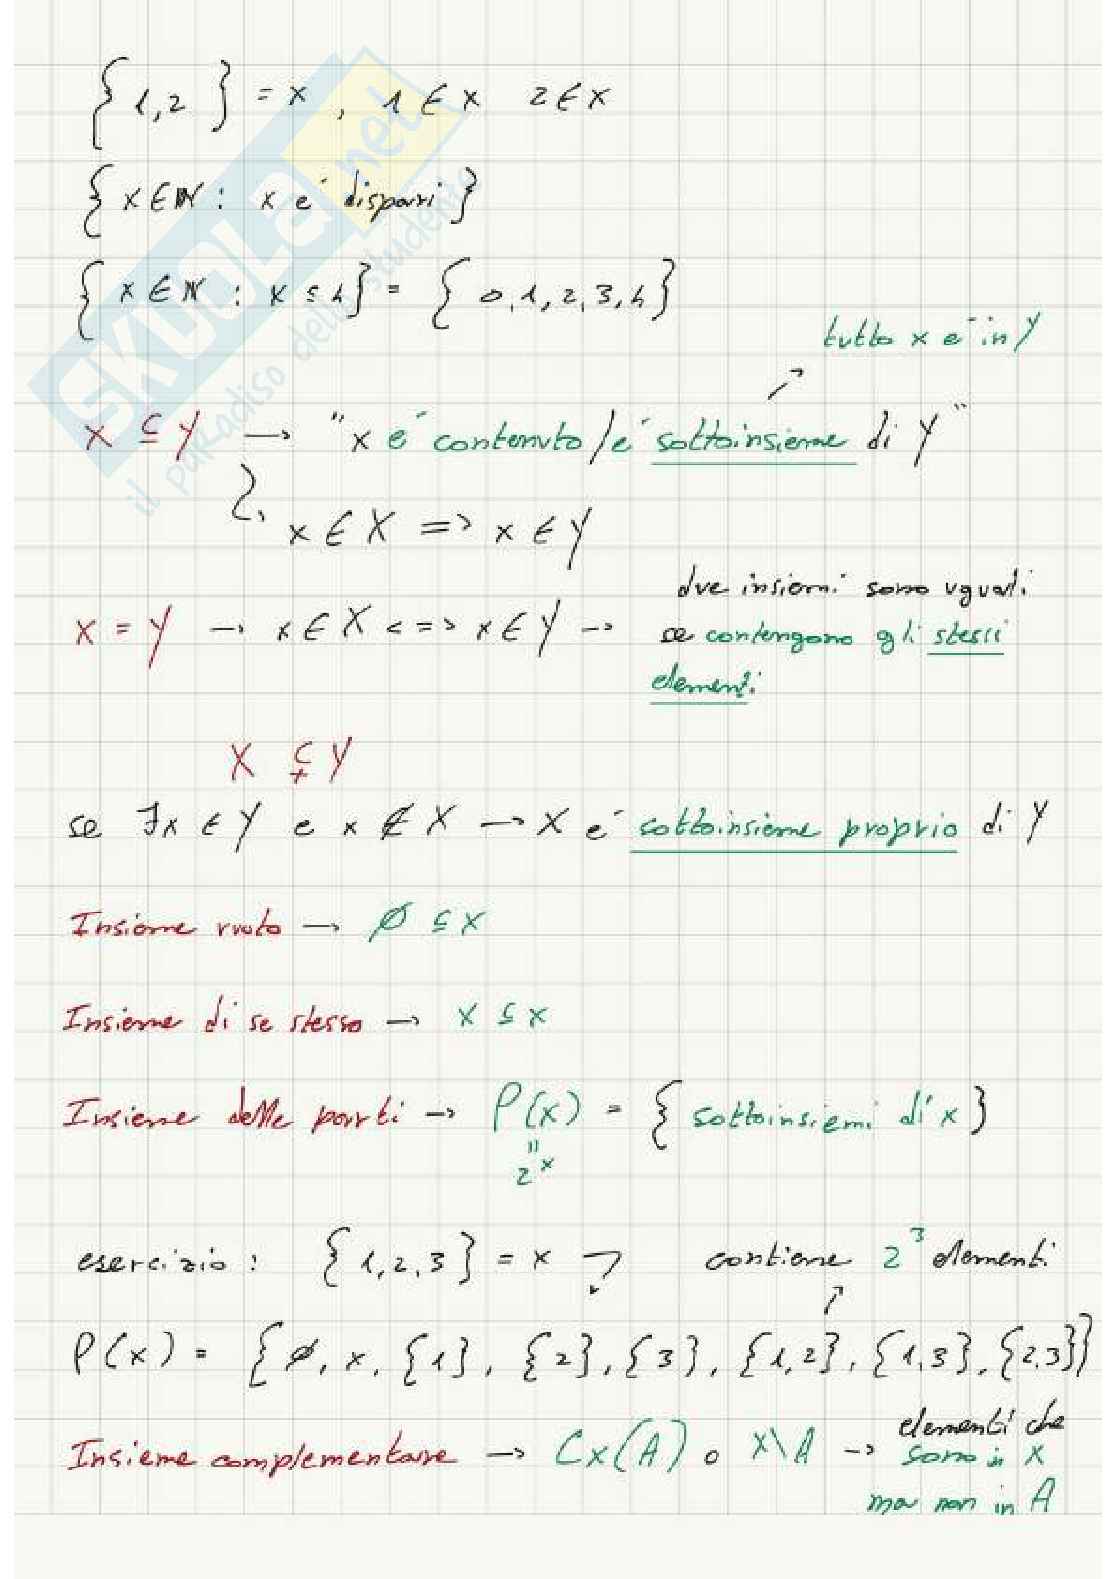 {1,2} = x , 1 ∈ x 2 ∈ x
{x ∈ ℕ : x e´ dispari}
{x ∈ ℕ : x ≤ 4} = {0,1,2,3,4}
tutto x e´ in Y
↗
x ⊆ Y → "x e´ contenuto/e´ sottoinsieme di Y"
x ∈ X => x ∈ Y
x = Y → x ∈ X <=> x ∈ Y → due insiemi sono uguali
se contengono gli stessi
elementi
X ⊊ Y
se ∃x ∈ Y e x ∉ X → X e´ sottoinsieme proprio di Y
Insieme vuoto → ∅ ⊆ x
Insieme di se stesso → x ⊆ x
Insieme delle parti → P(x) = {sottoinsiemi di x}
"
2^x
esercizio : {1,2,3} = x contiene 2^3 elementi
P(x) = {∅, x, {1}, {2}, {3}, {1,2}, {1,3}, {2,3}}
Insieme complementare → Cx(A) o x\A → elementi che
sono in X
ma non in A
SKUOLA.net
il paradiso dello studente